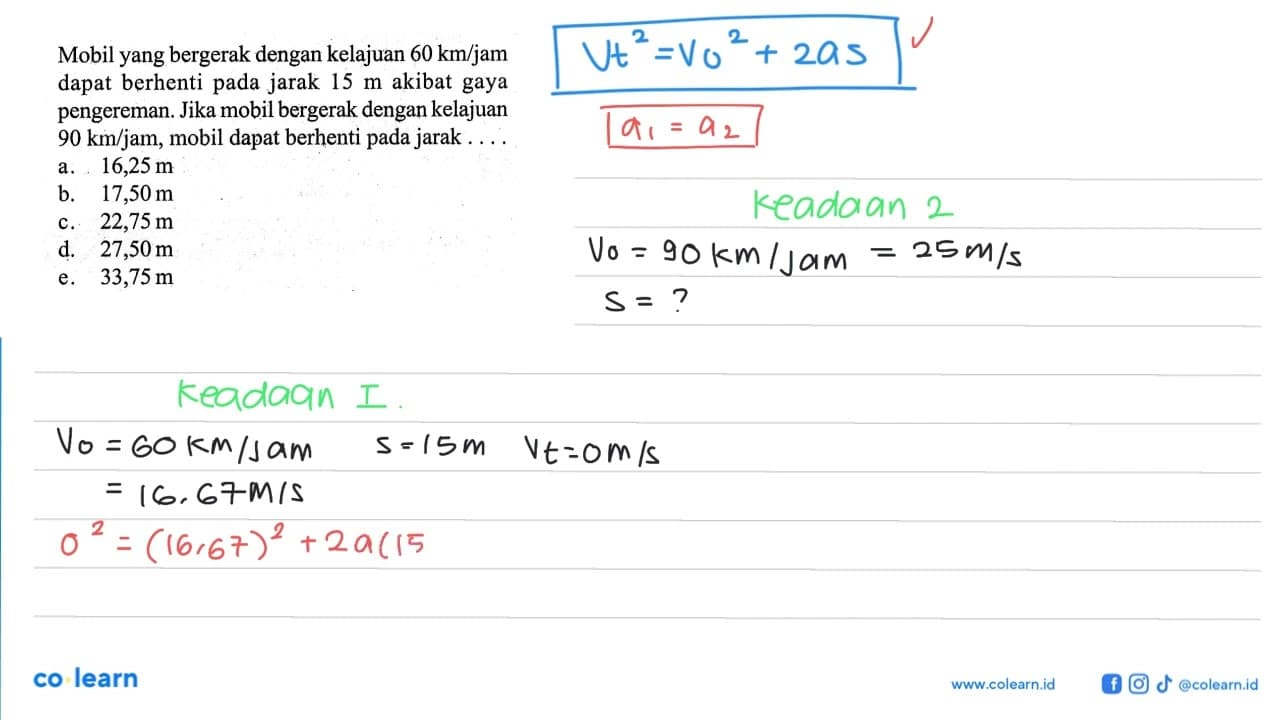 Mobil yang bergerak dengan kelajuan 60 km/jam
dapat berhenti pada jarak 15 m akibat gaya
pengereman. Jika mobil bergerak dengan kelajuan
90 km/jam, mobil dapat berhenti pada jarak . . . .
a. 16,25 m
b. 17,50 m
c. 22,75 m
d. 27,50 m
e. 33,75 m
Vt² = Vo² + 2as ✓
a₁ = a₂
Keadaan 2
Vo = 90 km/jam = 25 m/s
s = ?
Keadaan I.
Vo = 60 km/jam s = 15 m Vt = 0 m/s
= 16.67 m/s
0² = (16,67)² + 2a(15
co learn
www.colearn.id
@colearn.id